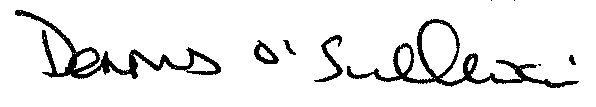 Dennis O'Sullivan